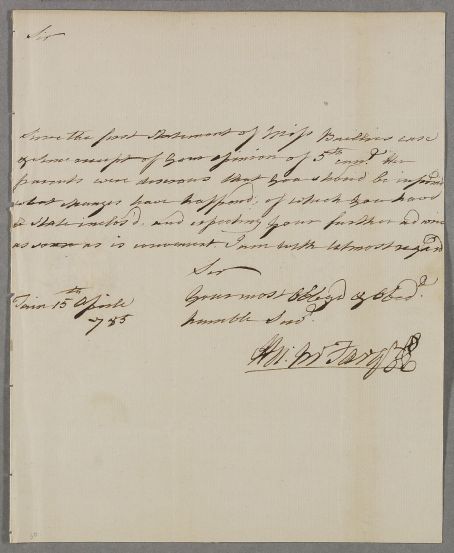 Sir
Since the first statement of Miss Baillies case
& Since receipt of your opinion of 5th curr.t Her
parents were desirous that you should be informd
what changes have happend, of which you have
a State inclos'd. and expecting your further advice
as soon as is convenient I am with utmost regard
Sir
Your most Oblegd & Obed.t
humble Serv.t
Tain 15th Aprile
1785
McFarq
30